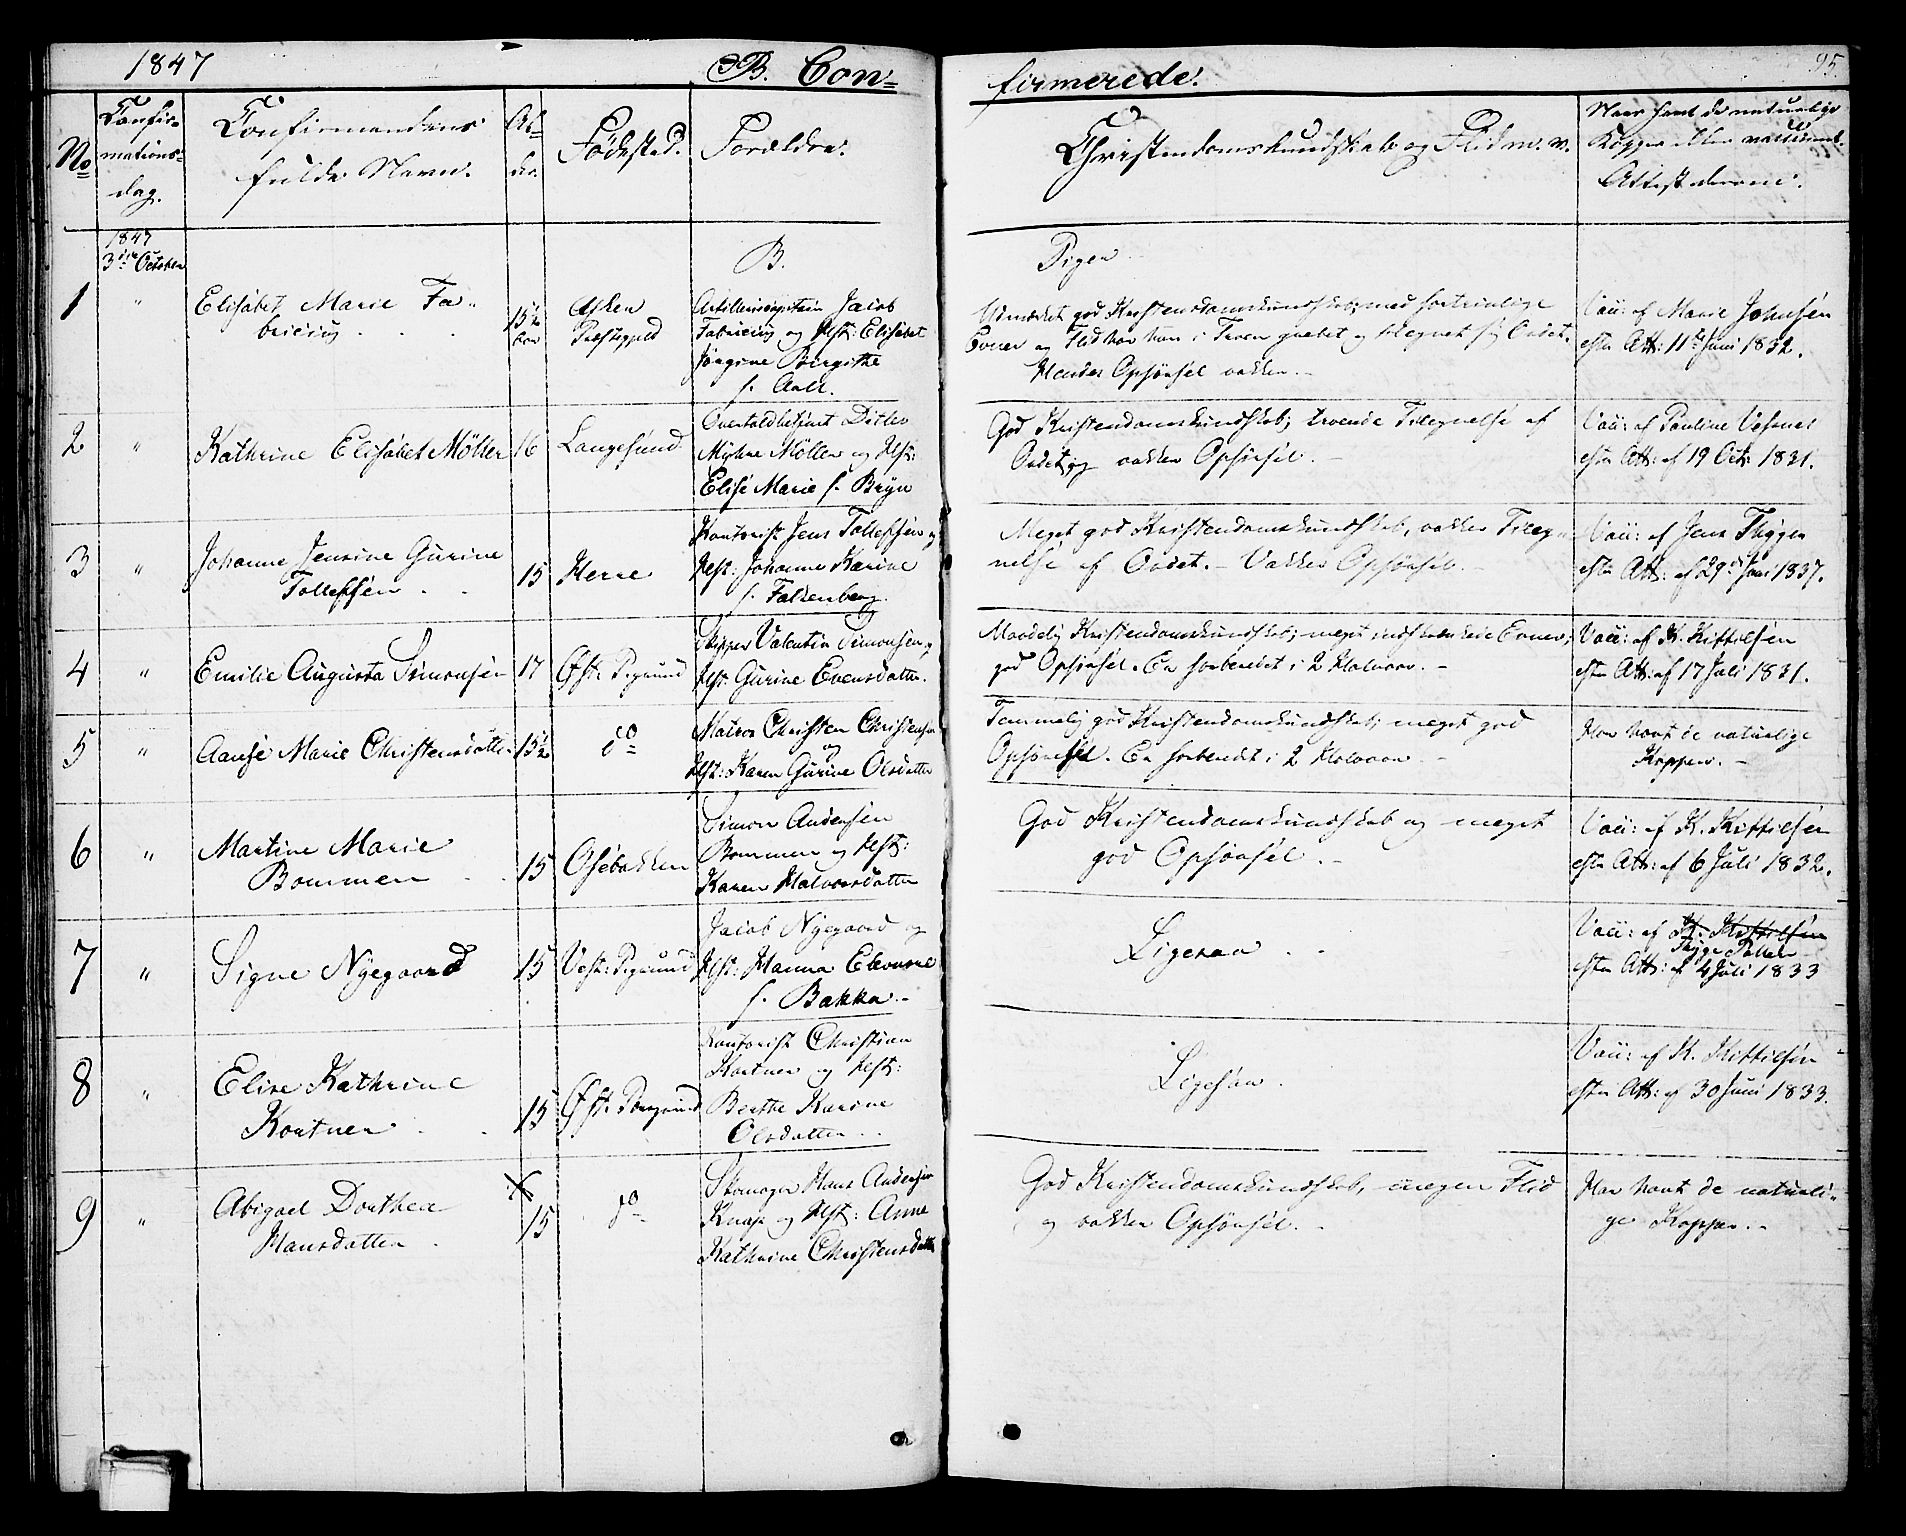 1847
B. Con-
firmerede.
95.
No
Confir-
mations-
dag.
Confirmandens
fulde Navn.
Al-
der
Fødested.
Forældre.
Christendomskundskab og Flid m. v.
Naar havt de naturlige
Kopper eller vaccineret
Attest derom.
1847
3die October
B.
Piger
1
"
Elisabet Marie Fa-
bricius
15½
Asker
Præstegjeld
Artillericapitain Jacob
Fabricius og Hst: Elisabet
Jørgine Birgithe
f. Aall.
Udmærket god Kristendomskundskab; med fortrinlige
Evner og Flid har hun i Troen grebet og tilegnet sig Ordet.
Hendes Opførsel vakker. -
Vacc: af Marie Johnsen
efter Att: 11te Juni 1832.
2
"
Kathrine Elisabet Möller
16
Langesund
Overtoldbetjent Ditlev
Möller og Hst:
Elise Marie f. Bryn
God Kristendomskundskab; troende Tilegnelse af
Ordet og vakker Opførsel. -
Vacc: af Pauline
efter Att: af 19 Octr 1831.
3
"
Johanne Jensine Gurine
Tollefsen
15
Herre
Kontorist Jens Tollefsen og
Hst: Johanne Karine
f. Falkenberg.
Meget god Kristendomskundskab, vakker Tileg-
nelse af Ordet. - Vakker Opførsel. -
Vacc: af Jens Thygen
efter Att: af 29de Juni 1837.
4
"
Emilie Augusta Simonsen
17
Øst: Porsgrund
Skipper Valentin Simonsen og
Hst: Gurine Evensdatter.
Maadelig Kristendomskundskab; meget indskrænkede Evner;
god Opførsel. Er forberedet i 2 Halvaar. -
Vacc: af K. Kittilsen
efter Att: af 17 Juli 1831.
5
"
Aanse Marie Christensdatter
15½
do
Matros Christen Christensen
og
Hst: Karen Gurine Olsdatter
Temmelig god Kristendomskundskab; meget god
Opførsel. Er forberedt i 2 Halvaar. -
Har havt de naturlige
Kopper. -
6
"
Martine Marie
Bommen
15
Osebakken
Simon Andersen
Bommen og Hst:
Karen Halvorsdatter
God Kristendomskundskab og meget
god Opførsel. -
Vacc: af K. Kittilsen
efter Att: af 6 Juli 1832.
7
"
Signe Nyegaard
15
Vest: Porsgrund
Jacob Nyegaard og
Hst: Hanna Elevine
f. Bakka. -
Ligesaa
Vacc: af K. Kittilsen
efter Att: af 4 Juli 1833
8
"
Elise Kathrine
Kortner
15
Øst: Porsgrund
Kontorist Christian
Kortner og Hst:
Berthe Karine
Olsdatter
Ligesaa.
Vacc: af K. Kittilsen
efter Att: af 30 Juni 1833.
9
"
Abigael Dorthea
Hansdatter
15
do
Skomager Hans Andersen
Knap og Hst: Anne
Kathrine Christensdatter
God Kristendomskundskab, megen Flid
og vakker Opførsel. -
Har havt de naturli-
ge Kopper. -